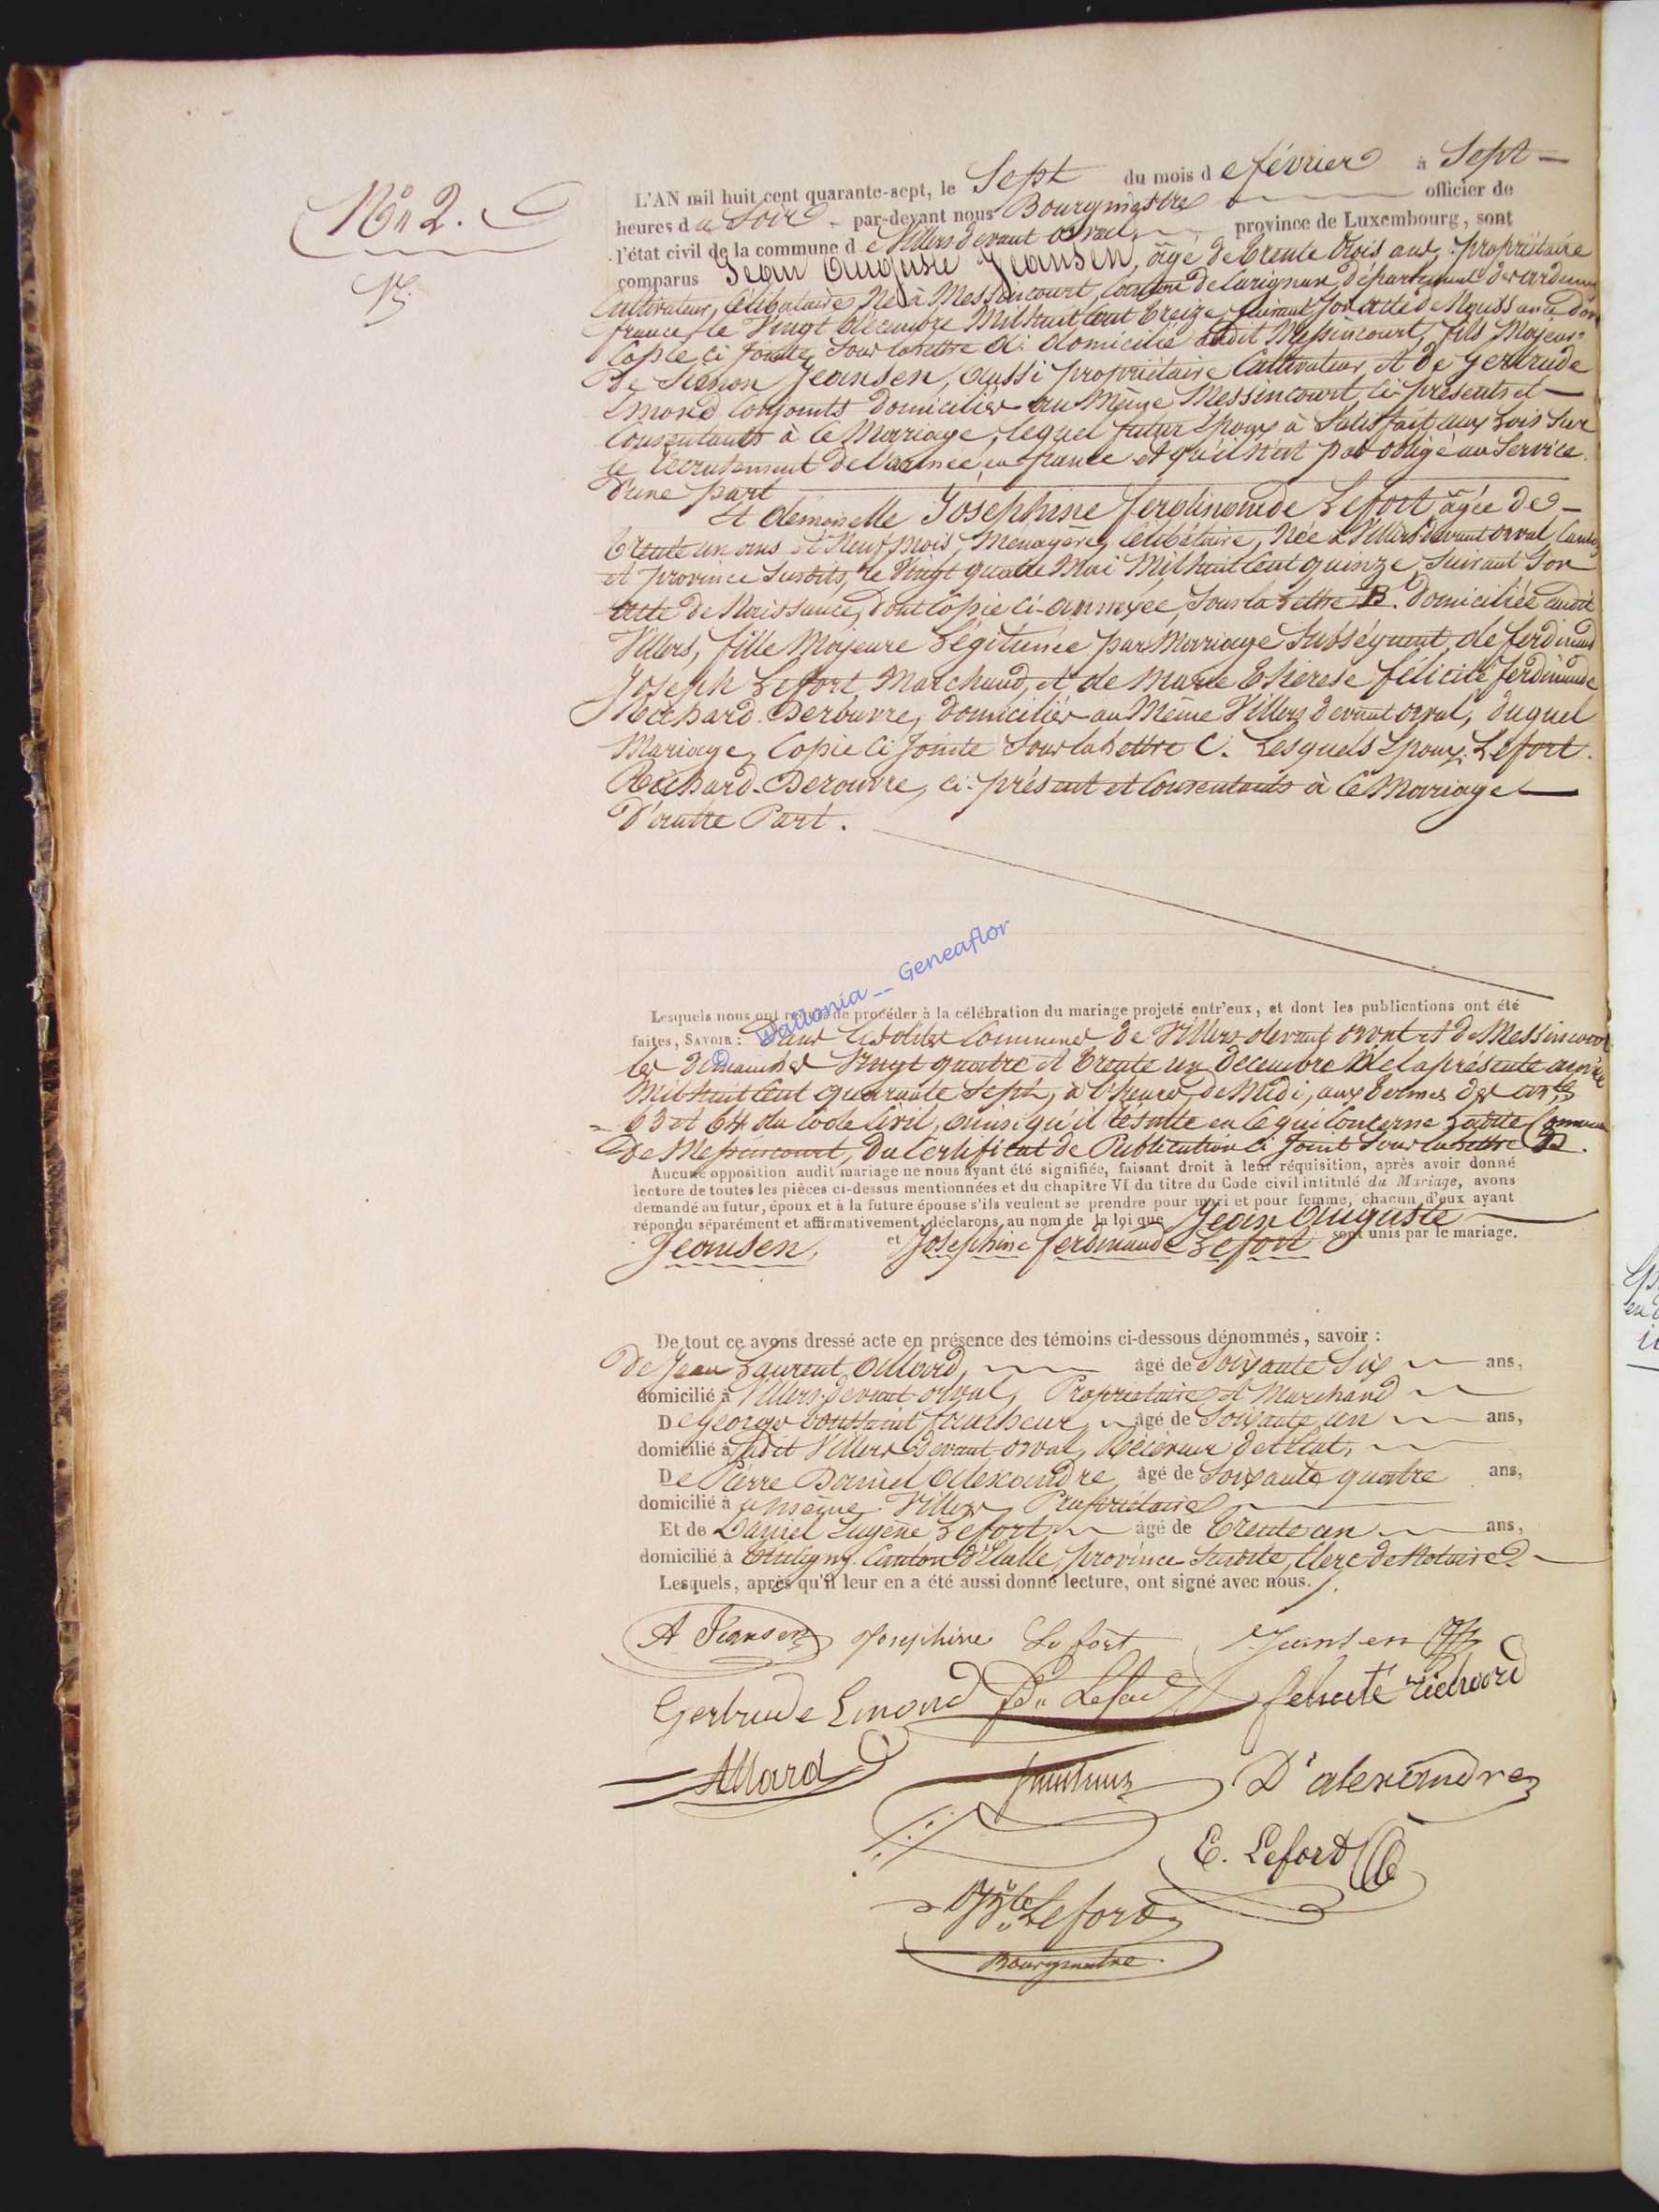 N° 2.
L'AN mil huit cent quarante-sept, le Sept du mois de février à Sept
heures du Soir par-devant nous Bourgmestre officier de
l'état civil de la commune de Villers devant orval, province de Luxembourg, sont
comparus Jean Auguste Jeansen, âgé de trente trois ans, propriétaire
Cultivateur, Célibataire Né à Messincourt, Canton de Carignan, département des ardennes
france, le Vingt décembre Mil huit cent treize, suivant son acte de Naissance dont
Copie ci jointe, sous la lettre A: domicilié audit Messincourt, fils Majeur
de Simon Jeansen, aussi propriétaire Cultivateur, et de Gertrude
Emond Conjoints domiciliés au Même Messincourt, ci présents et
Consentants à ce Mariage, lequel futur Epoux à Satisfait aux Lois Sur
le recrutement de l'armée en france et qu'il n'est pas obligé au Service
d'une part
Et demoiselle Joséphine ferdinande Lefort âgée de
trente un ans et Neuf mois, Menagère, Célibataire, Née à Villers devant orval, Canton
et province susdits, le Vingt quatre Mai Mil huit Cent quinze, Suivant Son
acte de Naissance, dont Copie ci-annexée, Sous la Lettre B. Domiciliée audit
Villers, fille Majeure Légitimée par Mariage Subséquent, de ferdinand
Joseph Lefort Marchand, et de Marie thérèse félicité ferdinande
Richard Derouvre, domiciliés au Même Villers devant orval, duquel
Mariage, Copie ci jointe Sous la Lettre C. Lesquels Epoux Lefort
Richard-Derouvre, ci-présent et Consentants à ce Mariage
D'autre Part.
© Wallonia__Geneaflor
Lesquels nous ont requis de procéder à la célébration du mariage projeté entr'eux, et dont les publications ont été
faites, SAVOIR : Dans lesdites Communes de Villers devant orval et de Messincourt
les dimanches Vingt quatre et trente un de la présente année
Mil huit Cent quarante Sept, à l'heure de Midi, aux termes des artes
63 et 64 du Code Civil, ainsi qu'il résulte en ce qui Concerne Ladite Commune
de Messincourt, du Certificat de Publication ci Joint Sous la lettre D.
Aucune opposition audit mariage ne nous ayant été signifiée, faisant droit à leur réquisition, après avoir donné
lecture de toutes les pièces ci-dessus mentionnées et du chapitre VI du titre du Code civil intitulé du Mariage, avons
demandé au futur, époux et à la future épouse s'ils veulent se prendre pour mari et pour femme, chacun d'eux ayant
répondu séparément et affirmativement, déclarons, au nom de la loi que Jean Auguste
Jeansen, et Joséphine ferdinande Lefort sont unis par le mariage.
De tout ce avons dressé acte en présence des témoins ci-dessous dénommés, savoir :
De Jean Laurent Allard, âgé de Soixante Six ans,
domicilié à Villers devant orval, Propriétaire et Marchand
De George faucheur âgé de Soixante un ans,
domicilié audit Villers devant orval, Receveur de l'Etat,
De Pierre Daniel Alexandre âgé de Soixante quatre ans,
domicilié à même Villers, Propriétaire
Et de Daniel Eugène Lefort âgé de trente un ans,
domicilié à Canton d'Etalle, province Susdite, Clerc de Notaire
Lesquels, après qu'il leur en a été aussi donné lecture, ont signé avec nous.
A Jeansen Josephine Lefort Jeansen
Gertrude Emond Lefort felicité richard
Allard D alexandre
E. Lefort
Lefort
Bourgmestre